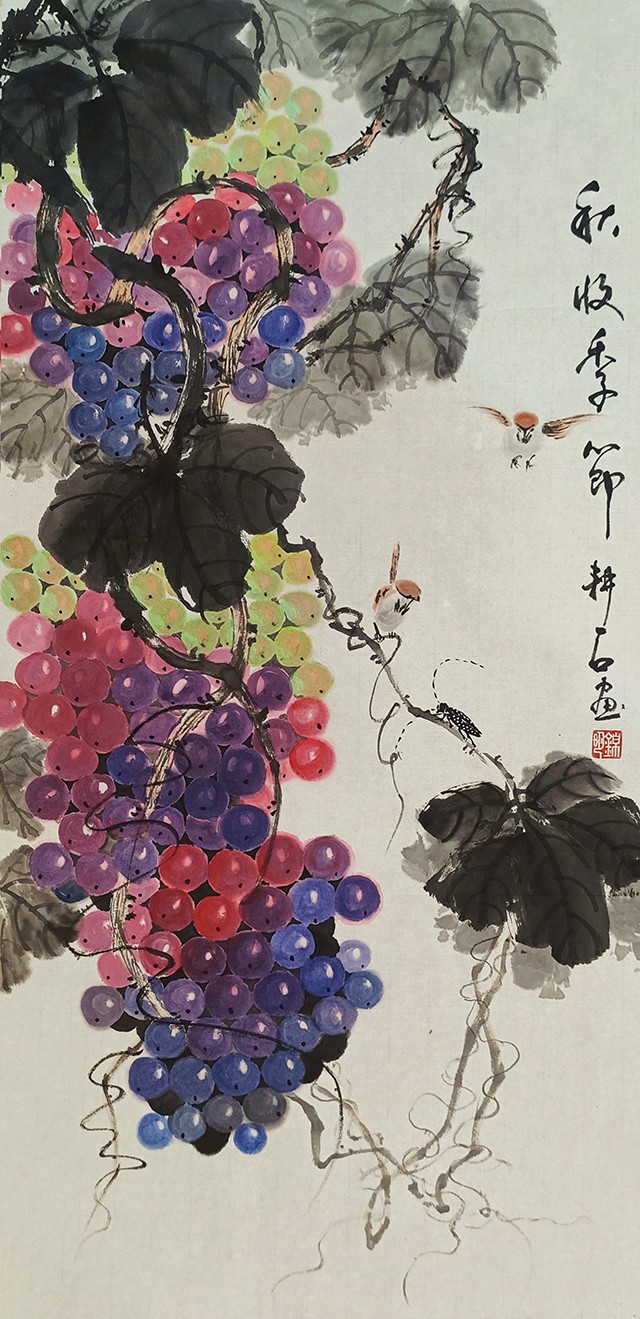 秋收季節 耕石画